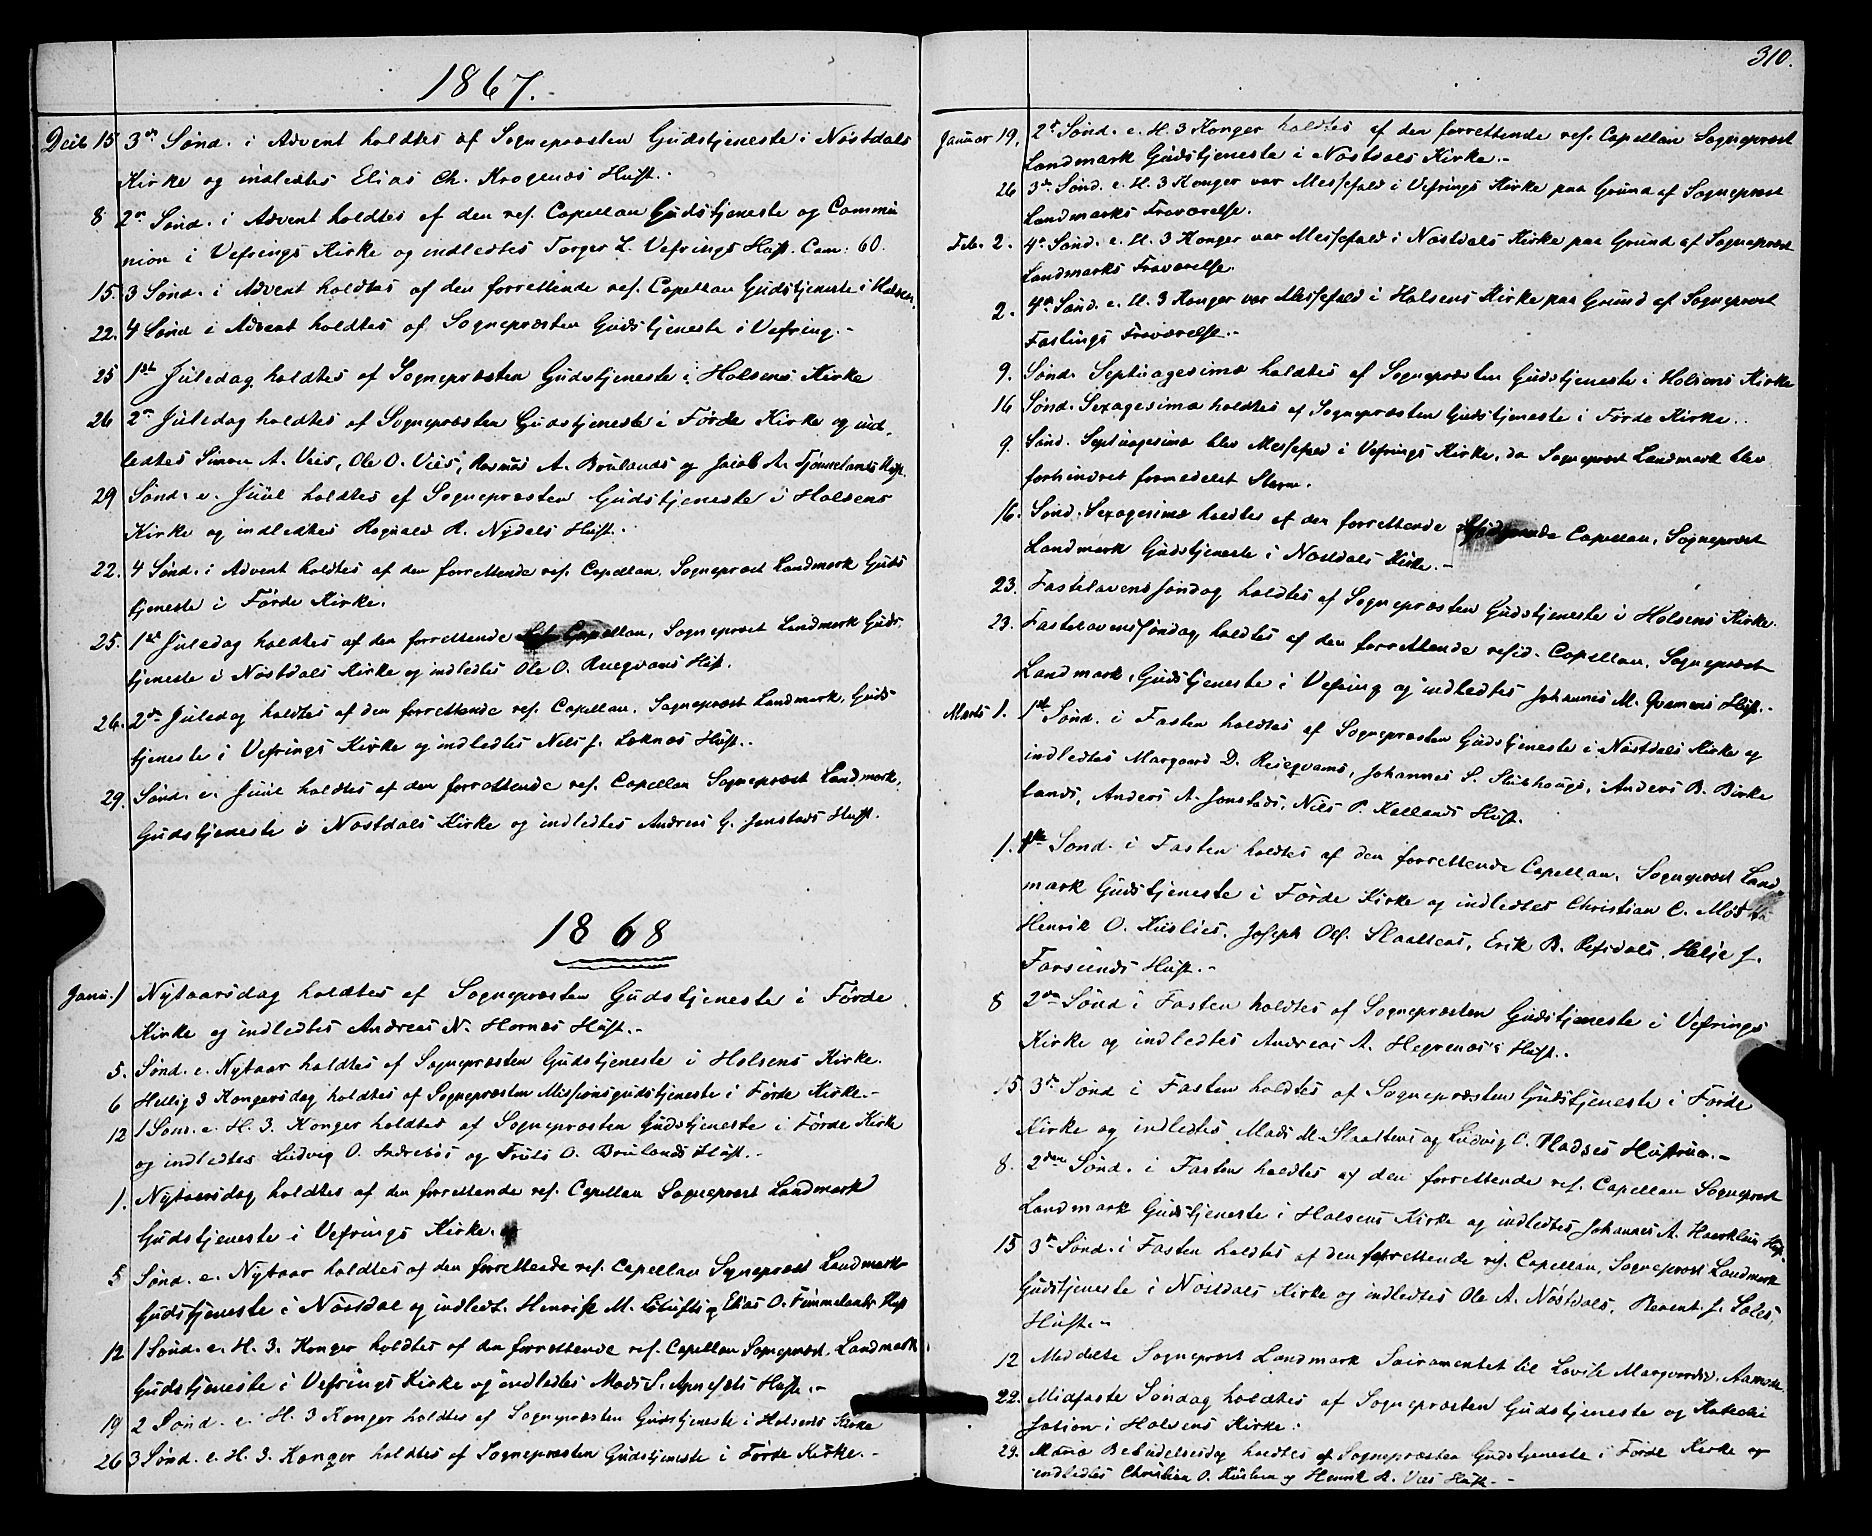 1867.
Decb 15 3die Sønd. i Advent holdtes af Sognepræsten Gudstjeneste i Nøstdals
Kirke og indledtes Elias Ch. Krogenæs Hust.
8 2den Sønd. i Advent holdtes af den res. Capellan Gudstjeneste og Commu
nion i Vefrings Kirke og indledtes Torger L. Vefrings Hust. Com: 60.
15. 3 Sønd. i Advent holdtes af den forrettende res. Capellan Gudstjeneste i Holsen.
22. 4 Sønd i Advent holdtes af Sognepræsten Gudstjeneste i Vefring.-
25 1ste Juledag holdtes af Sognepræsten Gudstjeneste i Holsens Kirke
26 2den Juledag holdtes af Sognepræsten Gudstjeneste i Førde Kirke og ind-
ledtes Simon A. Vies, Ole O. Vies, Rasmus A. Brulands og Jacob A.
29 Sønd. e. Juul holdtes af Sognepræsten Gudstjeneste i Holsens
Kirke og indledtes Rognald R. Nydals Hust.
22. 4 Sønd. i Advent holdtes af den forrettende res. Capellan, Sognepræst Landmark Guds
tjeneste i Førde Kirke.
25. 1ste Juledag holdtes af den forrettende Capellan, Sognepræst Landmark Guds
tjeneste i Nøstdals Kirke og indledtes Ole O. Hust.
26. 2den Juledag holdtes af den forrettende res. Capellan, Sognepræst Landmark, Guds
tjeneste i Vefrings Kirke og indledtes Nils J. Løknæs Hust.
29. Sønd. e. Juul holdtes af den forrettende res. Capellan Sognepræst Landmark,
Gudstjeneste i Nøstdals Kirke og indledtes Andreas G. Jonstads Hust.
1868
Janu. 1 Nytaarsdag holdtes af Sognepræsten Gudstjeneste i Førde
Kirke og indledtes Andreas N. Hornes Hust.-
5. Sønd. e. Nytaar holdtes af Sognepræsten Gudstjeneste i Holsens Kirke.
6 Hellig 3 Kongersdag holdtes af Sognepræsten Missionsgudstjeneste i Førde Kirke.-
12 1 Sønd. e. H. 3. Konger holdtes af Sognepræsten Gudstjeneste i Førde Kirke
og indledtes Ludvig O. Indrebøs og Truls O. Brulands Hust.-
1. Nytaarsdag holdtes af den forrettende res. Capellan Sognepræst Landmark
Gudstjeneste i Vefrings Kirke.
5 Sønd. e. Nytaar holdtes af den forrettende res. Capellan Sognepræst Landmark
Gudstjeneste i Nøstdal og indledt. Henrik M. og Elias O. Hust
12 1 Sønd. e. H. 3. Konger holdtes af den forrettende res. Capellan Sognepræst. Landmark,
Gudstjeneste i Vefrings Kirke og indledtes Mads S. Hust.-
19 2 Sønd. e. H. 3 Konger holdtes af Sognepræsten Gudstjeneste i Holsens Kirke
26 3 Sønd. e. H. 3. Konger holdtes af Sognepræsten Gudstjeneste i Førde Kirke.-
310.
Januar 19. 2den Sønd. e. H. 3 Konger holdtes af den forrettende res. Capellan Sognepræst
Landmark Gudstjeneste i Nøstdals Kirke.-
26 3die Sønd. e. H. 3 Konger var Messefald i Vefrings Kirke paa Grund af Sognepræst
Landmarks Fraværelse.
Feb. 2. 4de Sønd. e. H. 3 Konger var Messefald i Nøstdals Kirke paa Grund af Sognepræst
Landmarks Fraværelse.
2. 4de Sønd. e. H. 3 Konger var Messefald i Holsens Kirke paa Grund af Sognepræst
Fastings Fraværelse.-
9. Sønd. Septuagesima holdtes af Sognepræsten Gudstjeneste i Holsens Kirke
16 Sønd. Sexagesima holdtes af Sognepræsten Gudstjeneste i Førde Kirke.
9 Sønd. Septuagesima blev Messefald i Vefrings Kirke, da Sognepræst Landmark blev
forhindret formedelst Storm.
16. Sønd. Sexagesima holdtes af den forrettende Capellan, Sognepræst
Landmark Gudstjeneste i Nøstdals Kirke.-
23. Fastelavenssøndag holdtes af Sognepræsten Gudstjeneste i Holsens Kirke.
23. Fastelavenssøndag holdtes af den forrettende resid. Capellan, Sognepræst
Landmark, Gudstjeneste i Vefring og indledtes Johannes M. Qvamens Hust.-
Marts 1. 1ste Sønd. i Fasten holdtes af Sognepræsten Gudstjeneste i Nøstdals Kirke og
indledtes Margaard D. Johannes S. Anders B. Birke
lands, Anders A. Jonstads, Nils P. Kellands Hust.
1. 1ste Sønd. i Fasten holdtes af den forrettende Capellan, Sognepræst Land
mark Gudstjeneste i Førde Kirke og indledtes Christian C.
Henrik O. Joseph Ols. Slaattens, Erik B. Refsdals, Helje J.
Farsunds Hust.-
8 2den Sønd i Fasten holdtes af Sognepræsten Gudstjeneste i Vefrings
Kirke og indledtes Andreas A. Hegrenæs's Hust.
15 3die Sønd i Fasten holdtes af Sognepræsten Gudstjeneste i Førde
Kirke og indledtes Mads M. Slaattens og Ludvig O. Hustruer.-
8. 2den Sønd. i Fasten holdtes af den forrettende res. Capellan Sognepræst
Landmark Gudstjeneste i Holsens Kirke og indledtes Johannes A. Hust.
15 3die Sønd. i Fasten holdtes af den forrettende res. Capellan, Sognepræst Landmark
Gudstjeneste i Nøstdals Kirke og indledtes Ole A. Nøstdals,
Hust.-
12 Meddelte Sognepræst Landmark Sacramentet til Lovise
22. Midfaste Søndag holdtes af Sognepræsten Gudstjeneste og Katechi
sation i Holsens Kirke.
25. Mariæ Bebudelsesdag holdtes af Sognepræsten Gudstjeneste i Førde Kirke og
indledtes Christian O. og Henrik A. Vies Hust.-